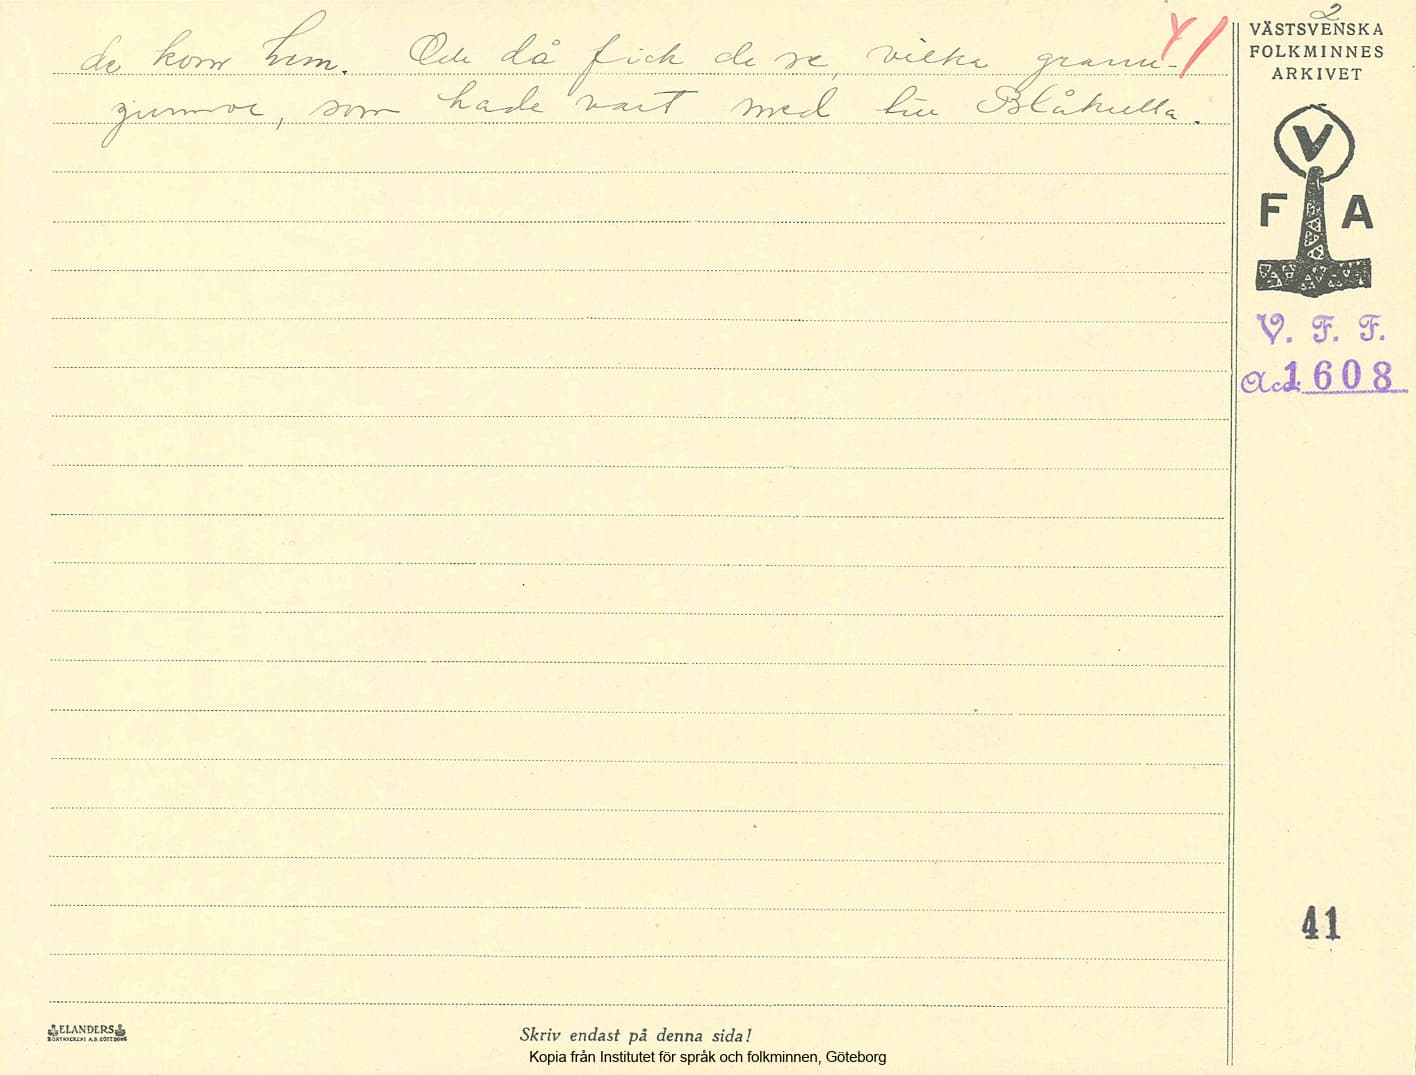 de kom hem. Och då fick de se, vilka grann-
gummor, som hade vart med till Blåkulla.
41
2
VÄSTSVENSKA
FOLKMINNES
ARKIVET
V
F A
V. F. F.
Acc. 1608
41
ELANDERS
BOKTRYCKERI A.B. GÖTEBORG
Skriv endast på denna sida!
Kopia från Institutet för språk och folkminnen, Göteborg